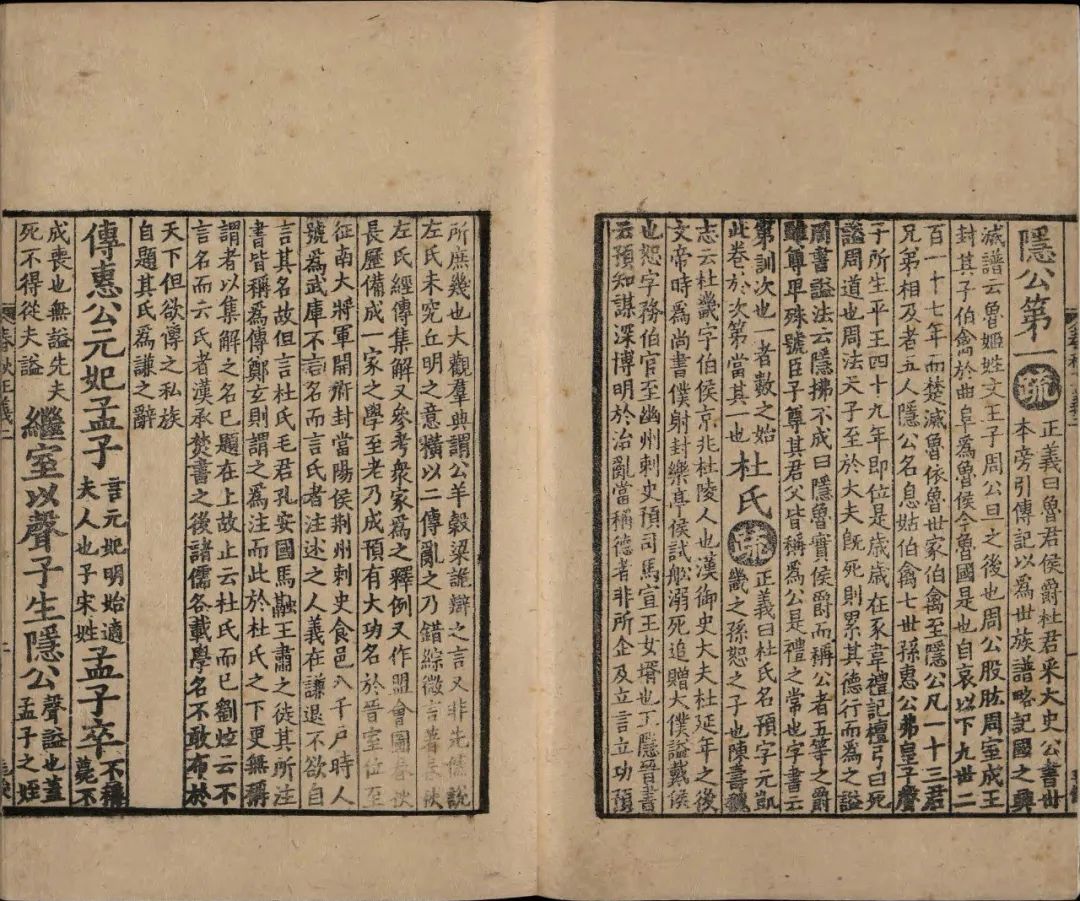 隱公第一 疏 正義曰魯君侯爵杜君采大史公書世本旁引傳記以爲世族譜略記國之興
滅譜云魯姬姓文王子周公旦之後也周公股肱周室成王
封其子伯禽於曲阜爲魯侯今魯國是也自哀以下九世二
百一十七年而楚滅魯依魯世家伯禽至隱公凡一十三君
兄弟相及者五人隱公名息姑伯禽七世孫惠公弗皇子聲
子所生平王四十九年即位是歲歲在豕韋禮記檀弓曰死
謚周道也周法天子至於大夫既死則累其德行而爲之謚
周書謚法云隱拂不成曰隱魯實侯爵而稱公者五等之爵
雖尊卑殊號臣子尊其君父皆稱爲公是禮之常也字書云
第訓次也一者數之始
此卷於次第當其一也 杜氏 疏 正義曰杜氏名預字元凱畿之孫恕之子也陳壽魏
志云杜畿字伯侯京兆杜陵人也漢御史大夫杜延年之後
文帝時爲尚書僕射封樂亭侯試船溺死追贈大僕謚戴侯
也恕字務伯官至幽州刺史預司馬宣王女壻也丁隱晉書
云預知謀深博明於治亂當稱德者非所企及立言立功預
所庶幾也大觀羣典謂公羊穀梁詭辯之言又非先儒說
左氏未究丘明之意橫以二傳亂之乃錯綜微言著春秋
左氏經傳集解又參考衆家爲之釋例又作盟會圖春秋
長歷備成一家之學至老乃成預有大功名於晉室位至
征南大將軍開府封當陽侯荆州刺史食邑八千戸時人
號爲武庫不言名而言氏者注述之人義在謙退不欲自
言其名故但言杜氏毛君孔安國馬融王肅之徒其所注
書皆稱爲傳鄭玄則謂之爲注而此於杜氏之下更無稱
謂者以集解之名已題在上故止云杜氏而已劉炫云不
言名而云氏者漢承焚書之後諸儒各載學名不敢布於
天下但欲傳之私族
自題其氏爲謙之辭
傳惠公元妃孟子 言元妃明始適夫人也子宋姓 孟子卒 不稱薨不
成喪也無謚先夫死不得從夫謚 繼室以聲子生隱公 聲謚也蓋孟子之姪